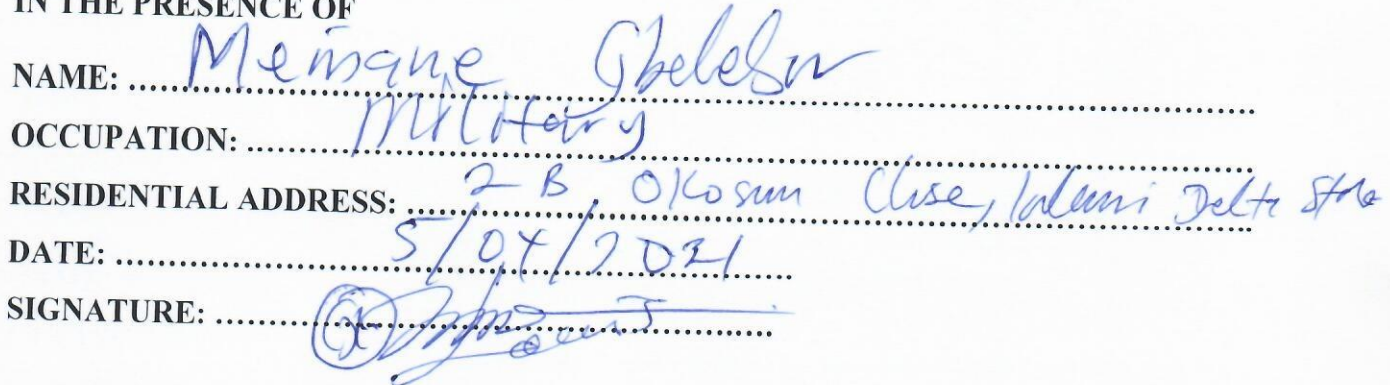 IN THE PRESENCE OF
NAME: Gbelebu
OCCUPATION: Military
RESIDENTIAL ADDRESS: 2 B, Okosun Close, Delta State
DATE: 5/04/2021
SIGNATURE: